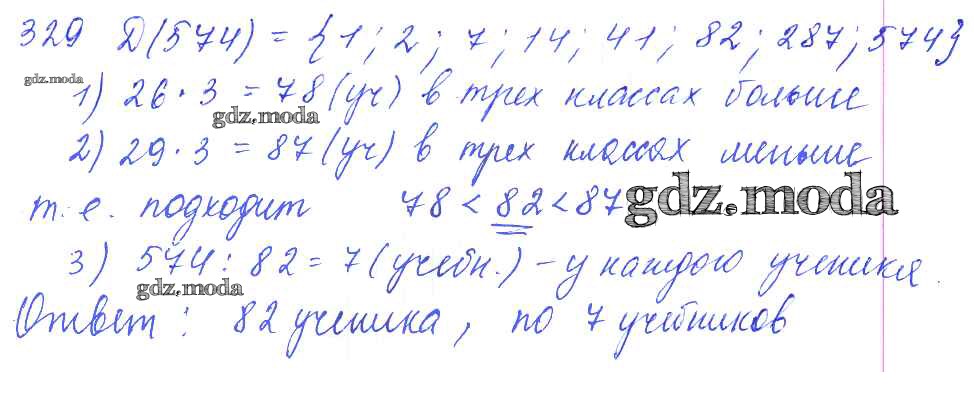 329 Д(574) = {1; 2; 7; 14; 41; 82; 287; 574}
gdz.moda
1) 26 · 3 = 78 (уч) в трех классах больше
gdz.moda
2) 29 · 3 = 87 (уч) в трех классах меньше
т.е. подходит 78 < 82 < 87
gdz.moda
3) 574 : 82 = 7 (учебн.) – у каждого ученика.
gdz.moda
Ответ: 82 ученика, по 7 учебников